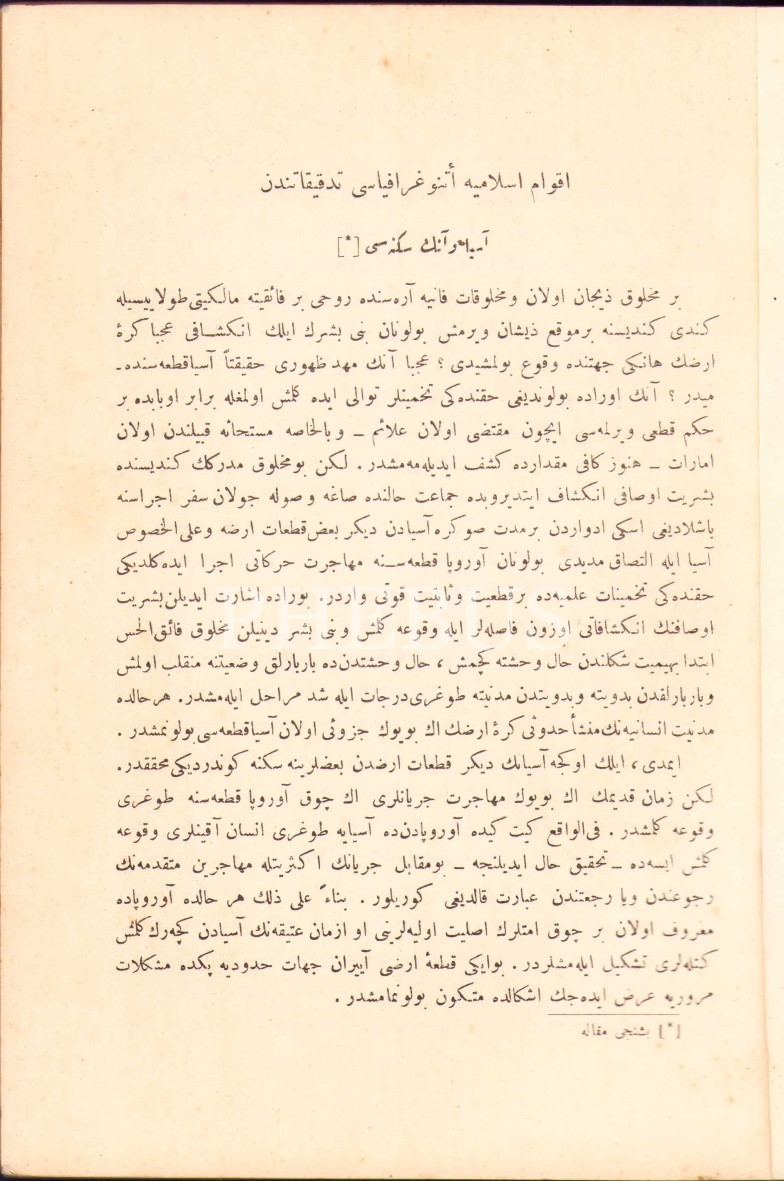 اقوام اسلاميه أتنوغرافياسى تدقيقاتندن
آسيا و آنك سكنه‌سى [*]
بر مخلوق ذيجان اولان و مخلوقات فانيه آره‌سنده روحى بر فائقيته مالكيتى طولاييسيله
كندى كنديسنه بر موقع ذيشان ويرمش بولونان بنى بشرك ايلك انكشافى عجبا كرۀ
ارضك هانكى جهتنده وقوع بولمشيدى ؟ عجبا آنك مهد ظهورى حقيقتاً آسيا قطعه‌سنده‌ـ
ميدر ؟ آنك اوراده بولونديغى حقنده‌كى تخمينلر توالى ايده كلمش اولمغله برابر اوبابده بر
حكم قطعى ويرلمه‌سى ايچون مقتضى اولان علائم ـ و بالخاصه مستحاثه قبيلندن اولان
امارات ـ هنوز كافى مقدارده كشف ايديله‌مه‌مشدر . لكن بو مخلوق مدركك كنديسنده
بشريت اوصافى انكشاف ايتديروبده جماعت حالنده صاغه وصوله جولان سفر اجراسنه
باشلاديغى اسكى ادواردن بر مدت صوكره آسيادن ديكر بعض قطعات ارضه و على الخصوص
آسيا ايله التصاق مديدى بولونان آوروپا قطعه‌سنه مهاجرت حركاتى اجرا ايده كلديكى
حقنده‌كى تخمينات علميه‌ده بر قطعيت و ثابتيت قوتى واردر. بوراده اشارت ايديلن بشريت
اوصافنك انكشافاتى اوزون فاصله‌لر ايله وقوعه كلمش و بنى بشر دينيلن مخلوق فائق الحس
ابتدا بهيميت شكلندن حال وحشته كچمش ، حال وحشتدن ده باربارلق وضعيتنه منقلب اولمش
و باربارلقدن بدويته و بدويتدن مدنيته طوغرى درجات ايله شد مراحل ايله‌مشدر. هر حالده
مدنيت انسانيه‌نك منشأ حدوثى كرۀ ارضك اك بويوك جزوئى اولان آسيا قطعه‌سى بولونمشدر .
ايمدى ، ايلك اوكجه آسيانك ديكر قطعات ارضدن بعضلرينه سكنه كوندرديكى محققدر.
لكن زمان قديمك اك بويوك مهاجرت جريانلرى اك چوق آوروپا قطعه‌سنه طوغرى
وقوعه كلمشدر . فى الواقع كيت كيده آوروپادن ده آسيايه طوغرى انسان آقينلرى وقوعه
كلمش ايسه‌ده ـ تحقيق حال ايديلنجه ـ بو مقابل جريانك اكثريتله مهاجرين متقدمه‌نك
رجوعندن ويا رجعتندن عبارت قالديغى كوريلور . بناءً على ذلك هر حالده آوروپاده
معروف اولان بر چوق امتلرك اصليت اوليه‌لرينى او ازمان عتيقه‌نك آسيادن كچه‌رك كلمش
كتله‌لرى تشكيل ايله‌مشلردر . بو ايكى قطعۀ ارضى آييران جهات حدوديه پكده مشكلات
مروريه عرض ايده‌جك اشكالده متكون بولونمامشدر .
[*] بشنجى مقاله